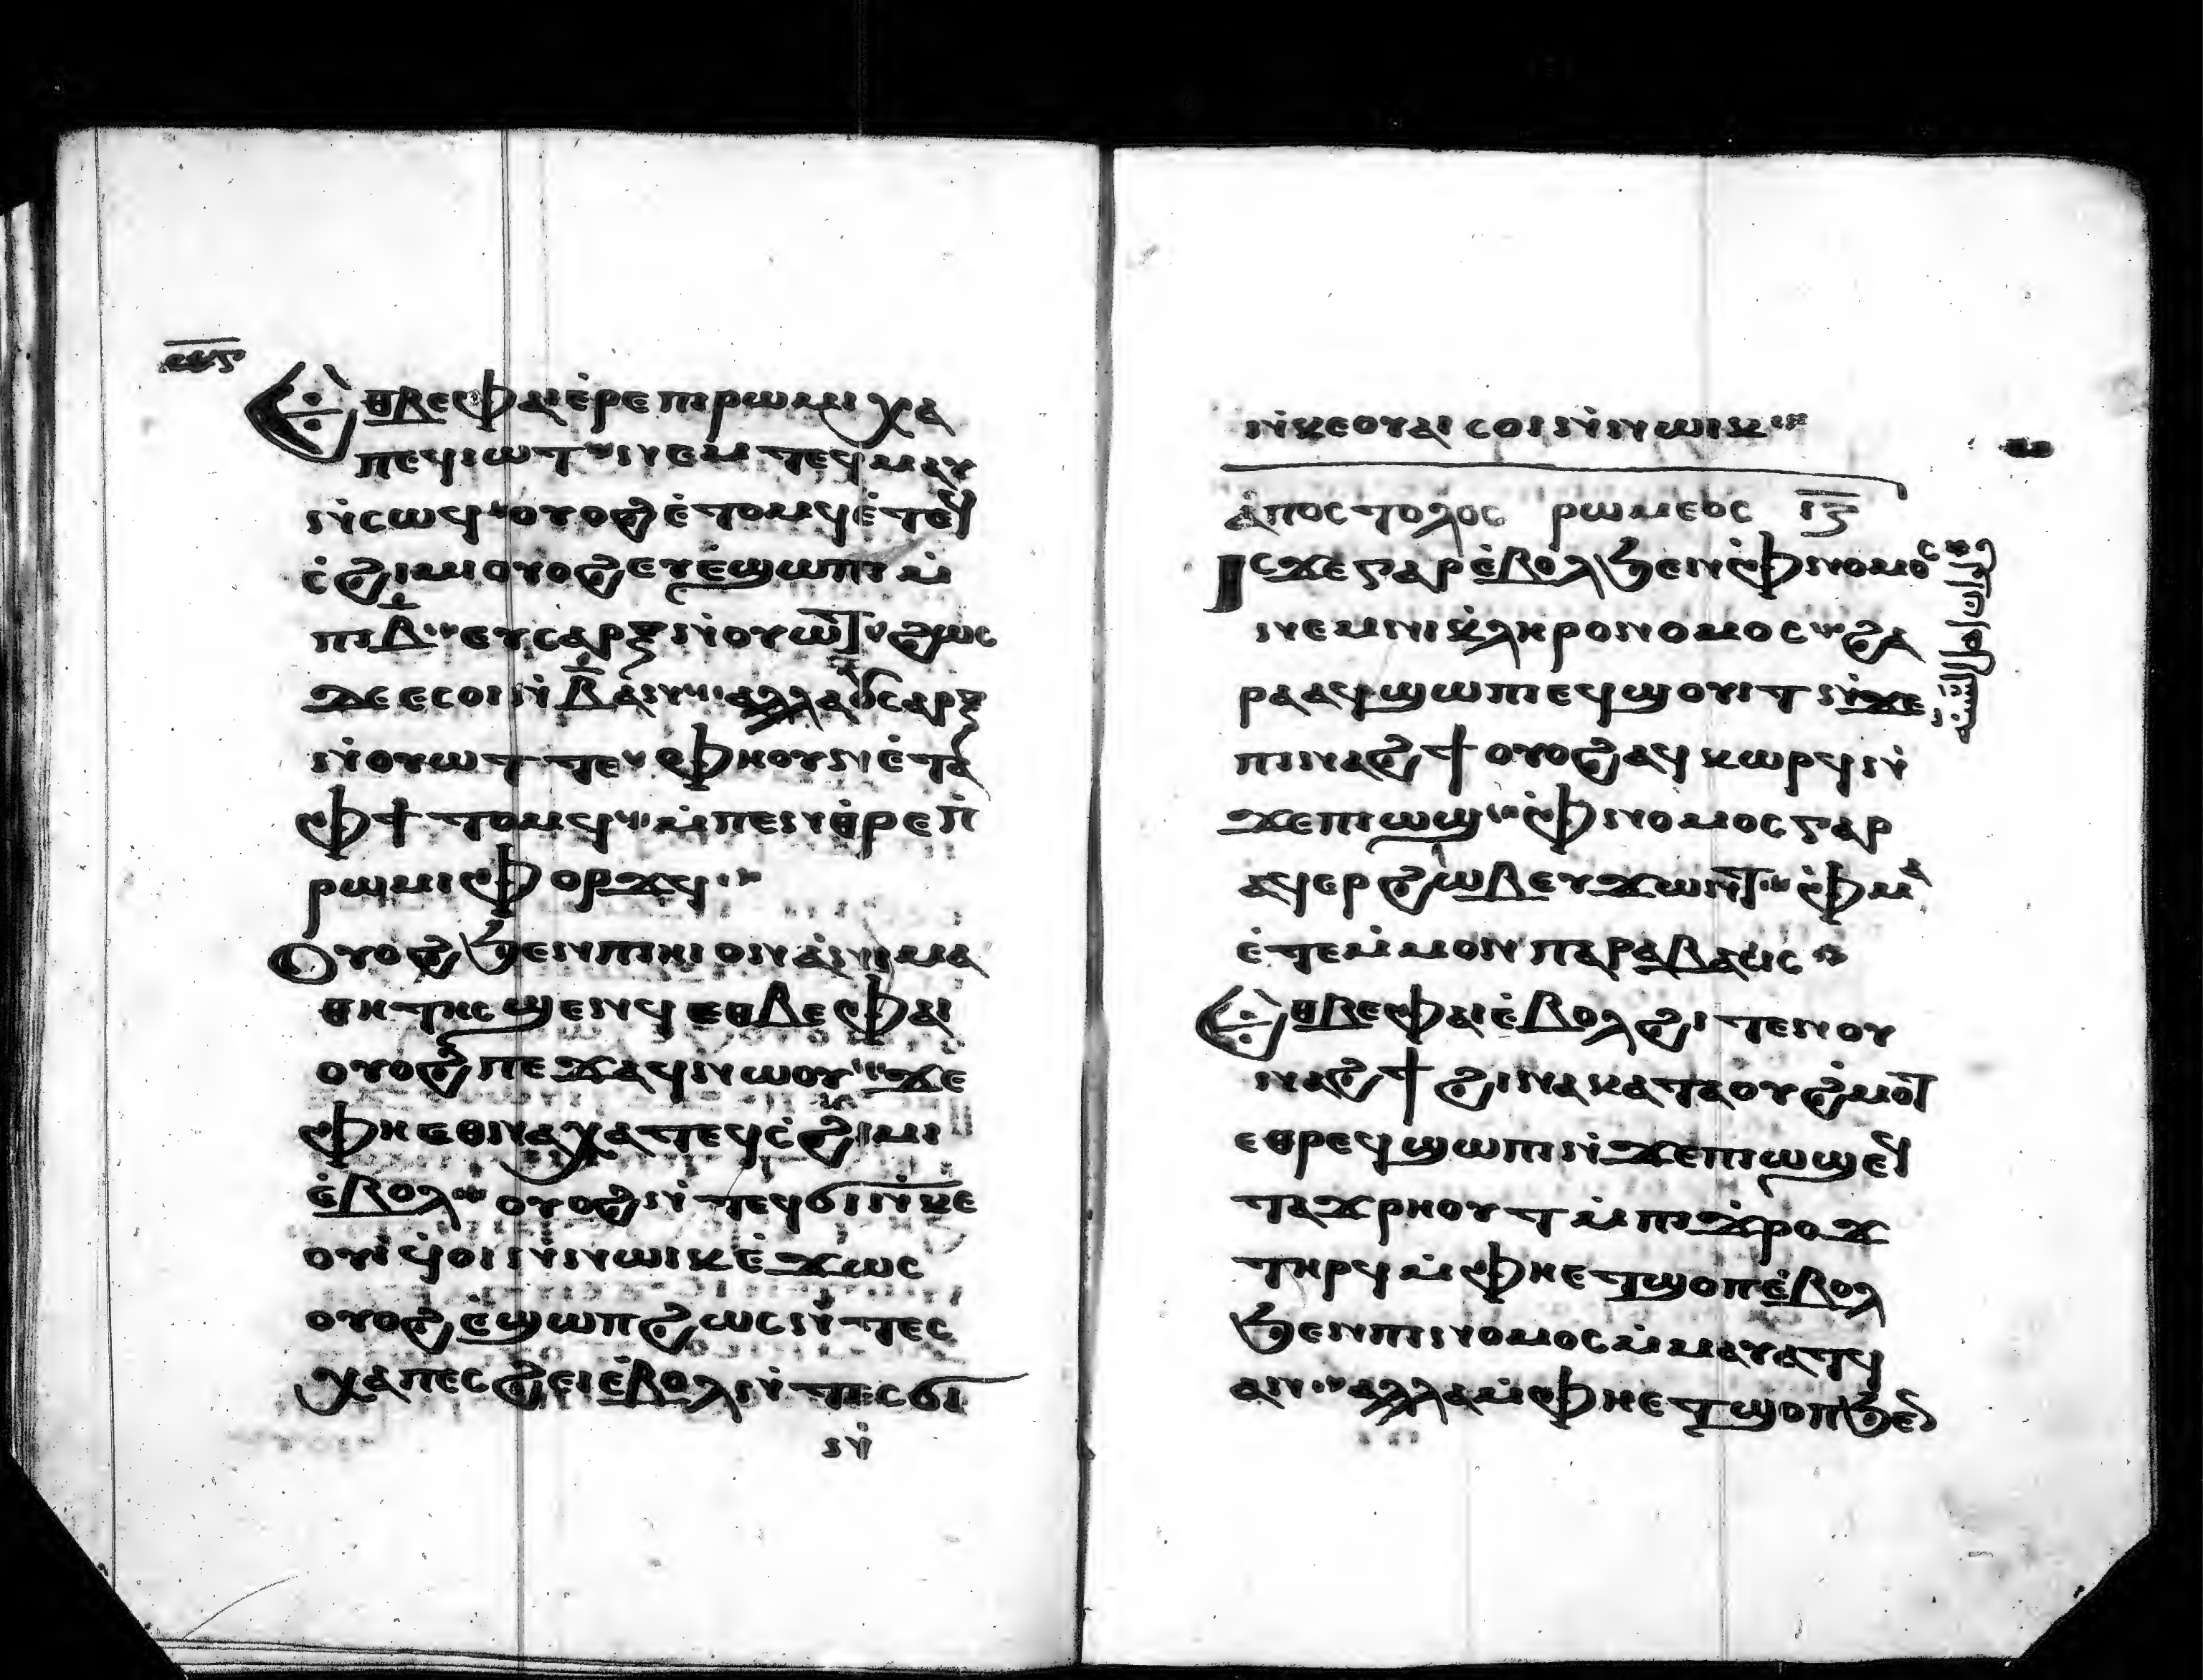 ⲉⲑⲃⲉⲫⲁⲓⲉ̀ⲣⲉ ⲡⲓⲣⲱⲙⲓ ⲭⲁ
ⲡⲉϥⲓⲱⲧ ⲛⲉⲙ ⲧⲉϥⲙⲁⲩ
ⲛ̀ⲥⲱϥ ⲟⲩⲟϩ ⲉ̀ⲧⲟⲙϥ ⲉ̀ⲧⲉϥ
ⲥ̀ϩⲓⲙⲓ ⲟⲩⲟϩ ⲉⲩⲉ̀ϣⲱⲡⲓ ⲙ̀
ⲡⲓⲃ̅ ⲉⲩⲥⲁⲣⲝ ⲛ̀ⲟⲩⲱⲧ ϩⲱⲥ
ϫⲉ ⲉⲥⲟⲓ ⲛ̀ⲃ̅ ⲁⲛ ⲁⲗⲗⲁ ⲟⲩⲥⲁⲣⲝ
ⲛ̀ⲟⲩⲱⲧ ⲧⲉ ⲫⲏⲟⲩⲛ ⲉ̀ⲧⲁ
ⲫϯ ⲧⲟⲙϥ ⲙ̀ⲡⲉⲛⲑⲣⲉ ⲡⲓ
ⲣⲱⲙⲓ ⲫⲟⲣϫϥ
ⲟⲩⲟϩ ϧⲉⲛ ⲡⲓⲏⲓ ⲟⲛ ⲁ̀ⲛⲓⲙⲁ
ⲑⲏⲧⲏⲥ ϣⲉⲛϥ ⲉⲑⲃⲉ ⲫⲁⲓ
ⲟⲩⲟϩ ⲡⲉϫⲁϥ ⲛⲱⲟⲩ ϫⲉ
ⲫⲏ ⲉⲑⲛⲁⲭⲁ ⲧⲉϥⲥ̀ϩⲓⲙⲓ
ⲉ̀ⲃⲟⲗ ⲟⲩⲟϩ ⲛ̀ⲧⲉϥϭⲓ ⲛ̀ⲕⲉ
ⲟⲩⲓ̀ ϥ̀ⲟⲓ ⲛ̀ⲛⲱⲓⲕ ⲉ̀ϫⲱⲥ
ⲟⲩⲟϩ ⲉ̀ϣⲱⲡ ϩⲱⲥ ⲛ̀ⲧⲉⲥ
ⲭⲁ ⲡⲉⲥϩⲉⲓ ⲉ̀ⲃⲟⲗ ⲛ̀ⲧⲉⲥϭⲓ
ⲛ̀
ⲛ̀ⲕⲉⲟⲩⲁⲓ ⲥⲟⲓ ⲛ̀ⲛⲱⲓⲕ
ⲁ̀ⲡⲟⲥⲧⲟⲗⲟⲥ ⲣⲱⲙⲉⲟⲥ ⲓ̅ⲍ̅
ⲓⲥϫⲉ ⲅⲁⲣ ⲉ̀ⲃⲟⲗ ϧⲉⲛ ⲫ̀ⲛⲟⲙⲟⲥ
ⲛⲉⲙ ⲛⲓⲕ̀ⲗⲏⲣⲟⲛⲟⲙⲟⲥ ϩⲁ
ⲣⲁ ⲁϥϣⲱⲡⲓ ⲉϥϣⲟⲩⲓⲧ ⲛ̀ϫⲉ
ⲡⲓⲛⲁϩϯ ⲟⲩⲟϩ ⲁϥⲕⲱⲣϥ ⲛ̀
ϫⲉ ⲡⲓⲱϣ ⲫ̀ⲛⲟⲙⲟⲥ ⲅⲁⲣ
ⲁϥⲉⲣϩⲱⲃ ⲉⲩϫⲱⲛⲧ ⲫ̀ⲙⲁ
ⲉ̀ⲧⲉ ⲙ̀ⲙⲟⲛ ⲡⲁⲣⲁⲃⲁⲥⲓⲥ
ⲉⲑⲃⲉⲫⲁⲓ ⲉ̀ⲃⲟⲗ ϩⲓⲧⲉⲛ ⲟⲩ
ⲛⲁϩϯ ϩⲓⲛⲁ ⲕⲁⲧⲁ ⲟⲩϩ̀ⲙⲟⲧ
ⲉⲑⲣⲉϥϣⲱⲡⲓ ⲛ̀ϫⲉ ⲡⲓⲱϣ ⲉϥ
ⲧⲁϫⲣⲏⲟⲩⲧ ⲙ̀ⲡⲓϫ̀ⲣⲟϫ
ⲧⲏⲣϥ ⲙ̀ⲫⲏ ⲉⲧϣⲟⲡ ⲉ̀ⲃⲟⲗ
ϧⲉⲛ ⲡⲓⲛⲟⲙⲟⲥ ⲙ̀ⲙⲁⲩⲁⲧϥ
ⲁⲛ ⲁⲗⲗⲁ ⲙ̀ⲫⲏ ⲉⲧϣⲟⲡ ϧⲉⲛ